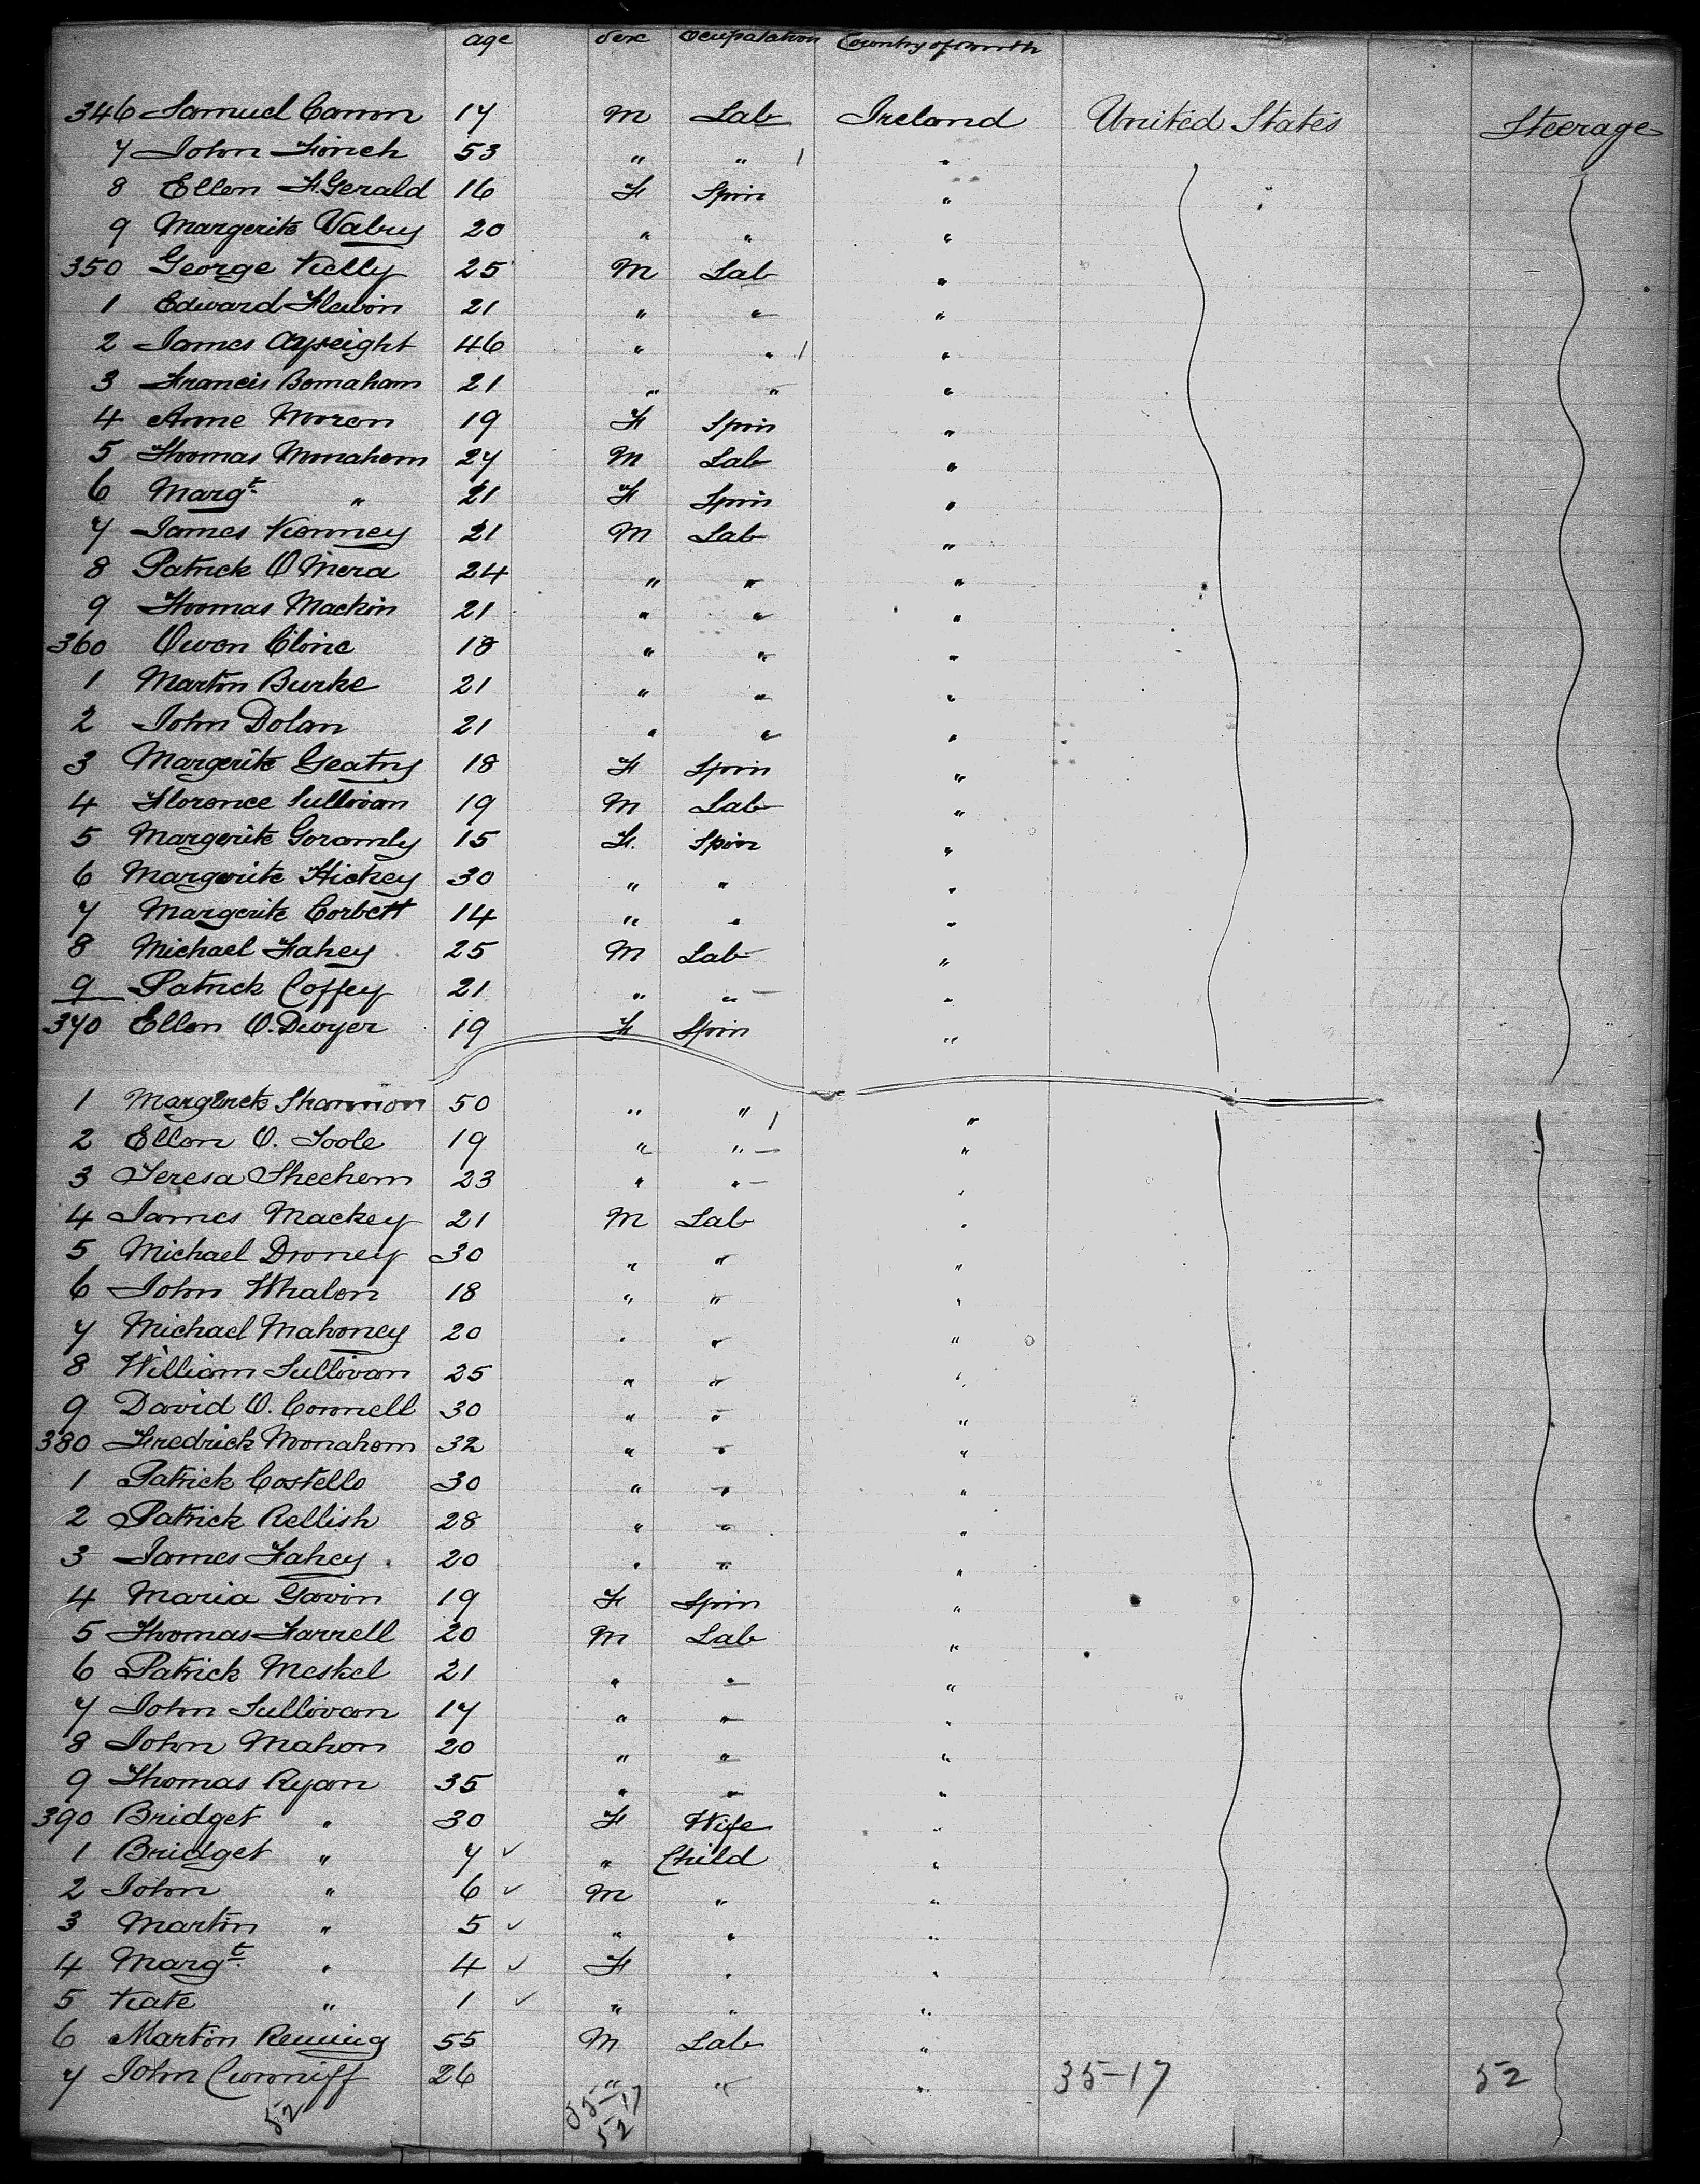 age Sex Ocupatation Country of birth
346 Samuel Canon 17 M Lab Ireland United States Steerage
7 John Finch 53 " " 1 "
8 Ellen F.Gerald 16 F Spin "
9 Margerite Vabry 20 " " "
350 George Kelly 25 M Lab "
1 Edward Flewin 21 " " "
2 James Ayreight 46 " " 1 "
3 Francis Bomaham 21 " " "
4 Anne Moran 19 F Spin "
5 Thomas Monahom 27 M Lab "
6 Margt " 21 F Spin "
7 James Kenney 21 M Lab "
8 Patrick O Mera 24 " " "
9 Thomas Mackin 21 " " "
360 Owen Cline 18 " " "
1 Martin Burke 21 " " "
2 John Dolan 21 " " "
3 Margerite Geatry 18 F Spin "
4 Florence Sullivan 19 M Lab "
5 Margerite Goramly 15 F. Spin "
6 Margerite Hickey 30 " " "
7 Margerite Corbett 14 " " "
8 Michael Fahey 25 M Lab "
9 Patrick Coffey 21 " " "
370 Ellen O.Dwyer 19 F Spin "
1 Margerete Shannon 50 " " 1 "
2 Ellen O. Toole 19 " " "
3 Teresa Sheehem 23 " " "
4 James Mackey 21 M Lab "
5 Michael Droney 30 " " "
6 John Whalen 18 " " "
7 Michael Mahoney 20 " " "
8 William Sullivan 25 " " "
9 David O. Connell 30 " " "
380 Fredrick Monahom 32 " " "
1 Patrick Costello 30 " " "
2 Patrick Rellish 28 " " "
3 James Fahey 20 " " "
4 Maria Gavin 19 F Spin "
5 Thomas Farrell 20 M Lab "
6 Patrick Meskel 21 " " "
7 John Sullivan 17 " " "
8 John Mahon 20 " " "
9 Thomas Ryan 35 " " "
390 Bridget " 30 F Wife "
1 Bridget " 7 ✓ " Child "
2 John " 6 ✓ M " "
3 Martin " 5 ✓ " " "
4 Margt " 4 ✓ F " "
5 Kate " 1 ✓ " " "
6 Martin Reuing 55 M Lab "
7 John Cunniff 26 " " " 35-17 52
52 35-17
52